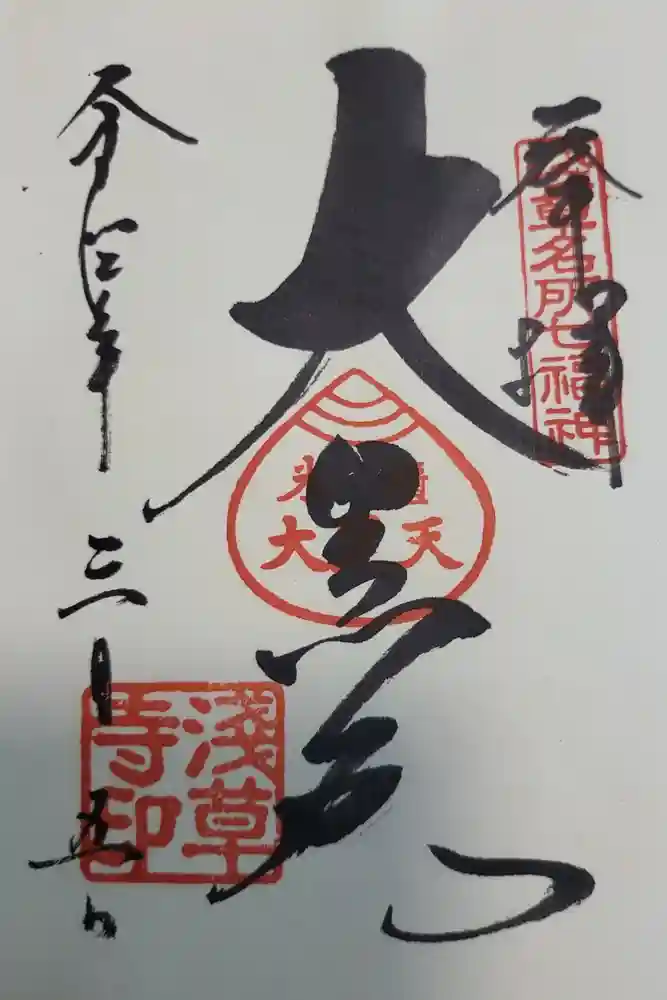 奉拝
浅草名所七福神
大黒天
米櫃
大黒天
令和 年三月五日
淺草
寺印